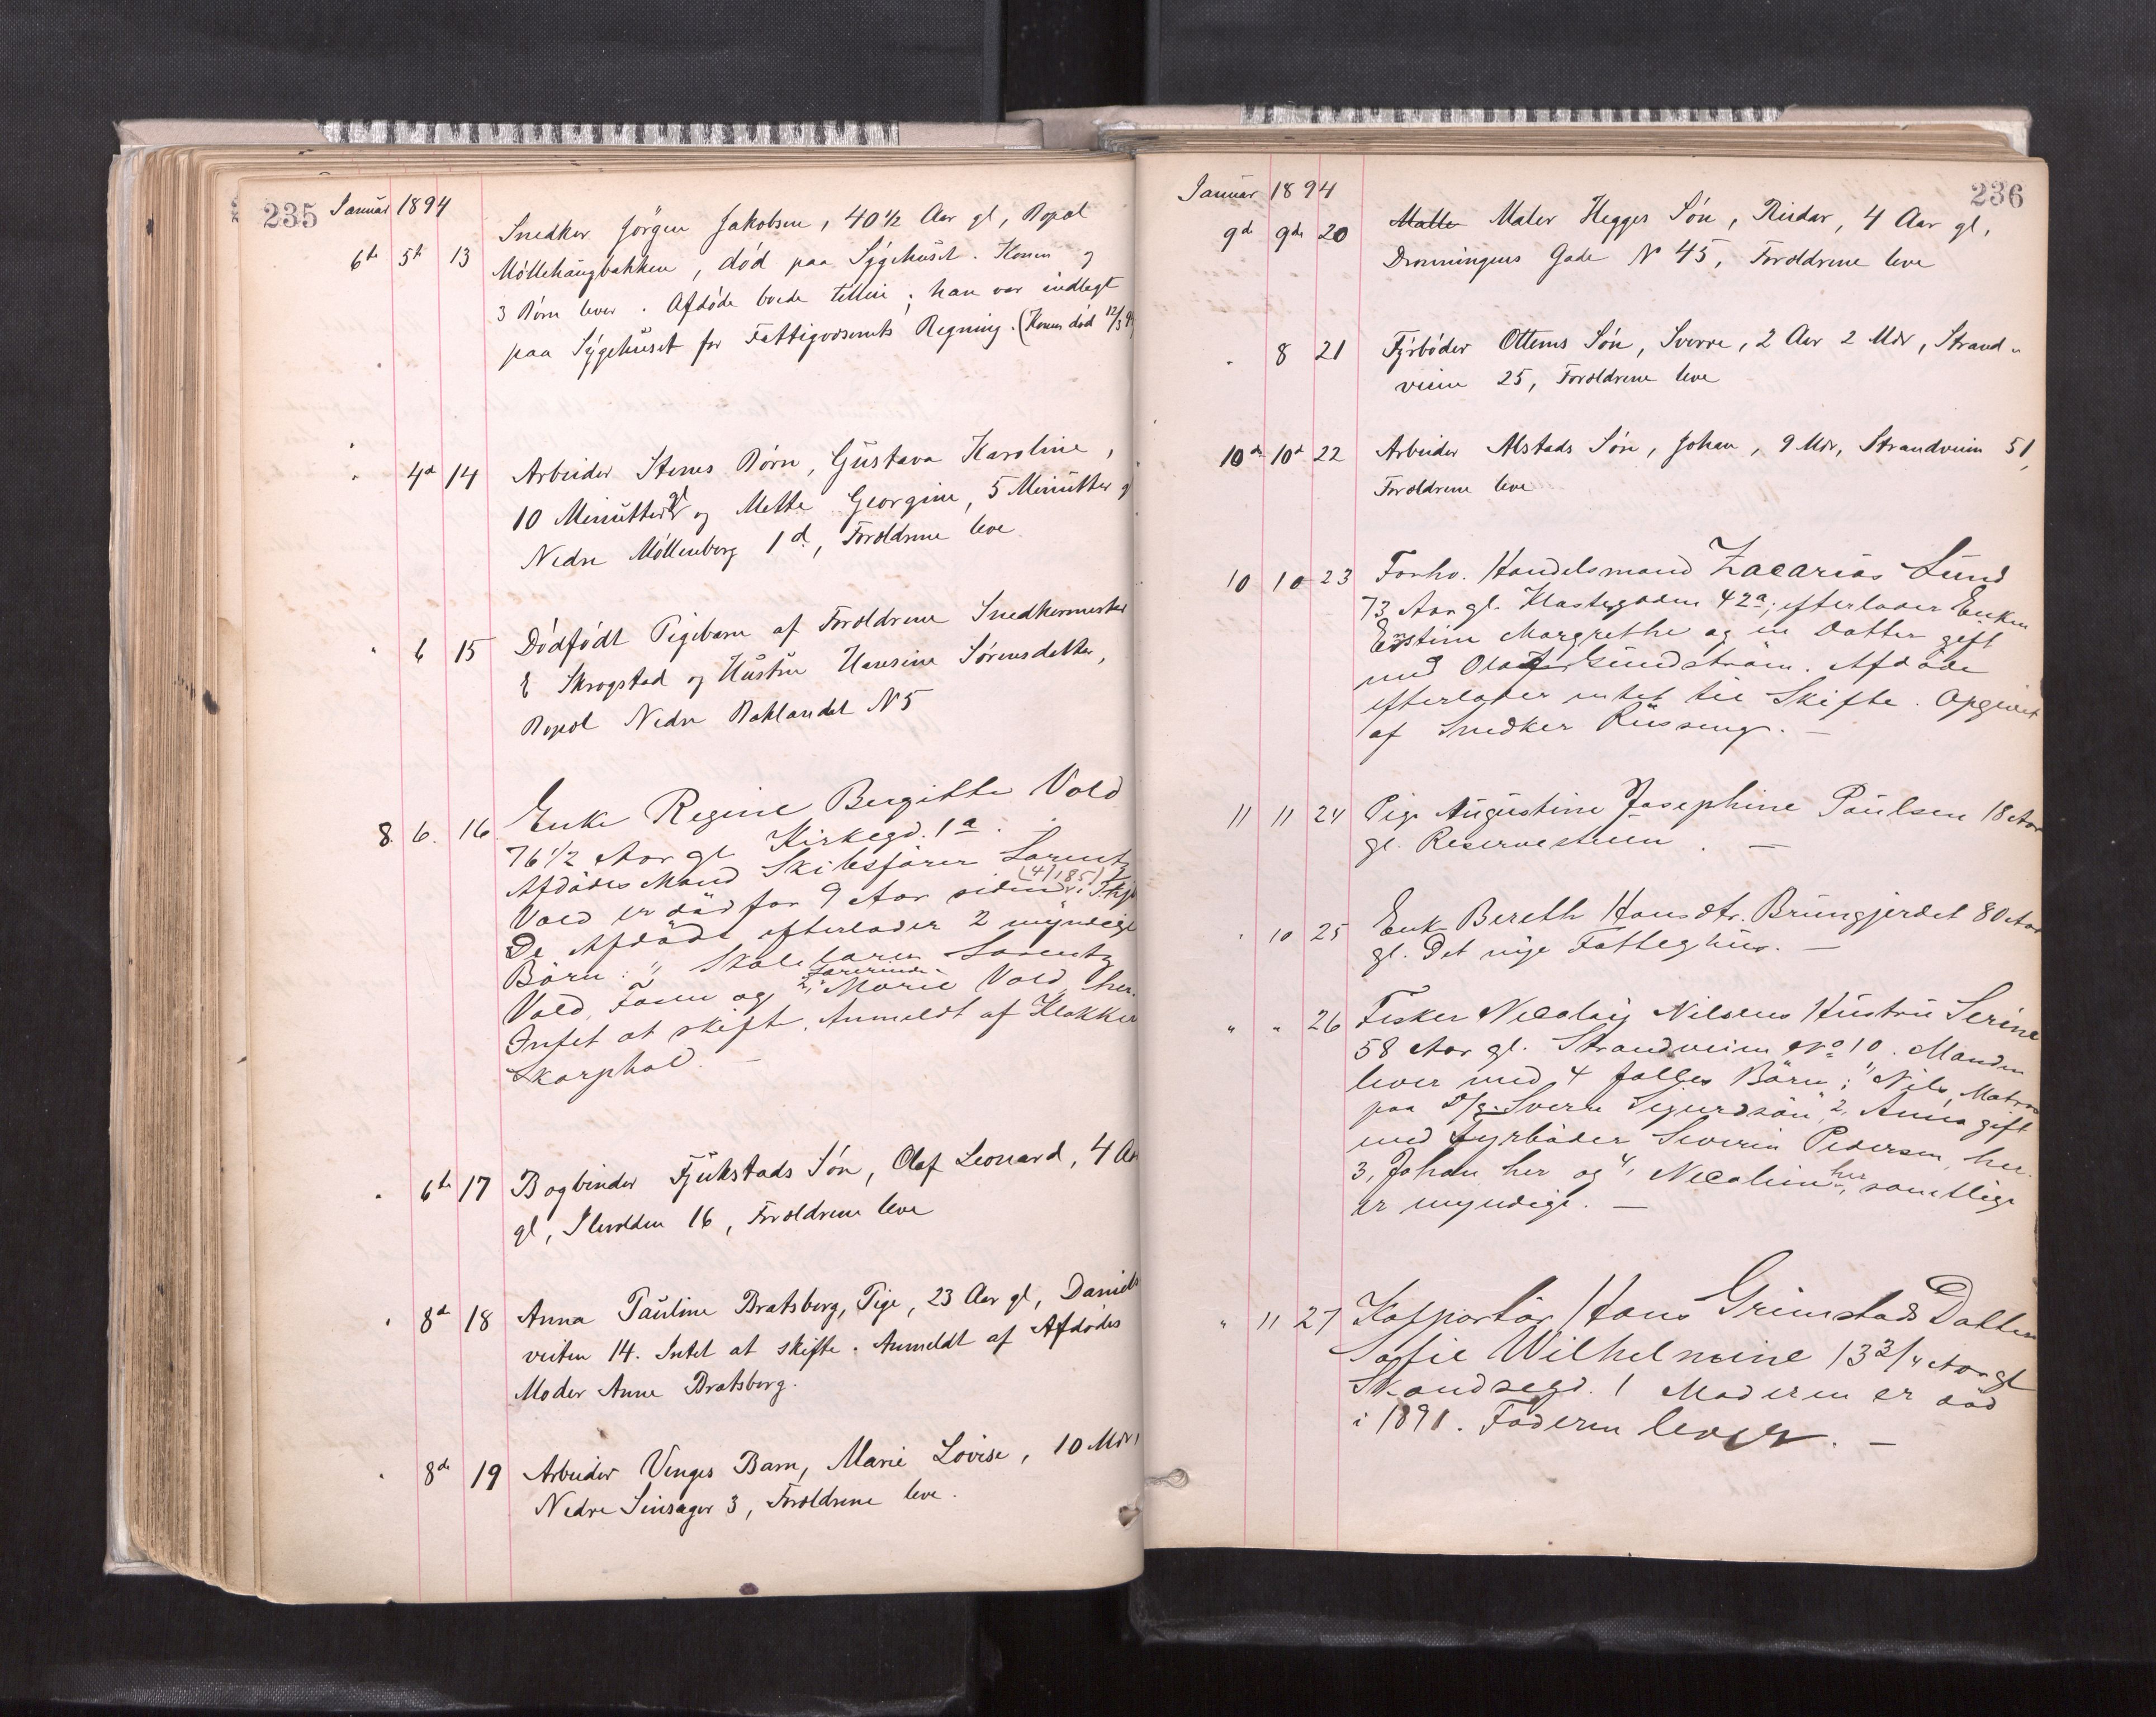 235 Januar 1894
Snedker Jörgen Jakobsen, 40 1/2 Aar gl, Bopæl
6te 5te 13 Möllehaugbakken, död paa Sygehuset. Konen og
3 Börn lever. Afdöde boede tilleie; han var indlagt
paa Sygehuset for Fattigvæsenets Regning. (Konen död 12/3 9
" 4de 14 Arbeider Stenes Börn, Gustava Karoline,
10 Minutter gl og Mette Georgine, 5 Minutter g
Nedre Möllenberg 1 d., Forældrene leve
" 6 15 Dödfödt Pigebarn af Forældrene Snedkermester
E Skrogstad og Hustru Hansine Sörensdatter,
Bopæl Nedre Baklandet N 5
8. 6. 16. Enke Regine Bergitte Vold
76 1/2 Aar gl Kirkegd. 1a.
Afdödes Mand Skibsförer Lorentz
Vold er död for 9 Aar siden (4/1 85) i Thj
De Afdöde efterlader 2 myndige
Börn: 1, Skolelærer Lorentz
Vold, Fosen og 2, Lærerinde Marie Vold, her.
Intet at skifte. Anmeldt af Klokker
Skarphol. —
" 6te 17 Bogbinder Fjukstads Sön, Olaf Leonard, 4 Aa
gl, Ilevolden 16, Forældrene leve
" 8de 18 Anna Pauline Bratsberg, Pige, 23 Aar gl, Daniels
veiten 14. Intet at skifte. Anmeldt af Afdödes
Moder Anne Bratsberg.
" 8de 19 Arbeider Venges Barn, Marie Lovise, 10 Mdr,
Nedre Sinsager 3, Forældrene leve.
Januar 1894 236
9de 9de 20 Maler Hegges Sön, Reidar, 4 Aar gl,
Dronningens Gade N 45, Forældrene leve
" 8 21 Fyrböder Ottems Sön, Sverre, 2 Aar 2 Mdr, Strand-
veien 25, Forældrene leve
10de 10de 22 Arbeider Alstads Sön, Johan, 9 Mdr, Strandveien 51,
Forældrene leve
10 10 23 Forhv. Handelsmand Zacarias Lund
73 Aar gl. 42a; efterlader Enken
Margrethe og en Datter gift
med Sundström. Afdöde
efterlader intet til Skifte. Opgivet
af Snedker Russeng. —
11 11 24 Pige Augustine Josephine Paulsen 18 Aar
gl. Reservestuen. —
" 10 25 Enke Bereth Hansdtr. Brungjerdet 80 Aar
gl. Det nye Fattighus. —
" " 26 Fisker Nicolay Nilsens Hustru Serine
58 Aar gl. Strandveien No 10. Manden
lever med 4 fælles Börn; 1, Nils, Matros
paa D/S. Sverre Sigurdsön, 2, Anna gift
med Fyrböder Severin Pedersen, her.
3, Johan her og 4, Nicoline her, samtlige
er myndige. —
" 11 27 Kolportör Hans Grimstads Datter
Sofie Wilhelmine 13 3/4 Aar gl
Skandsegd. 1 Moderen er död
i 1891. Faderen lever. —